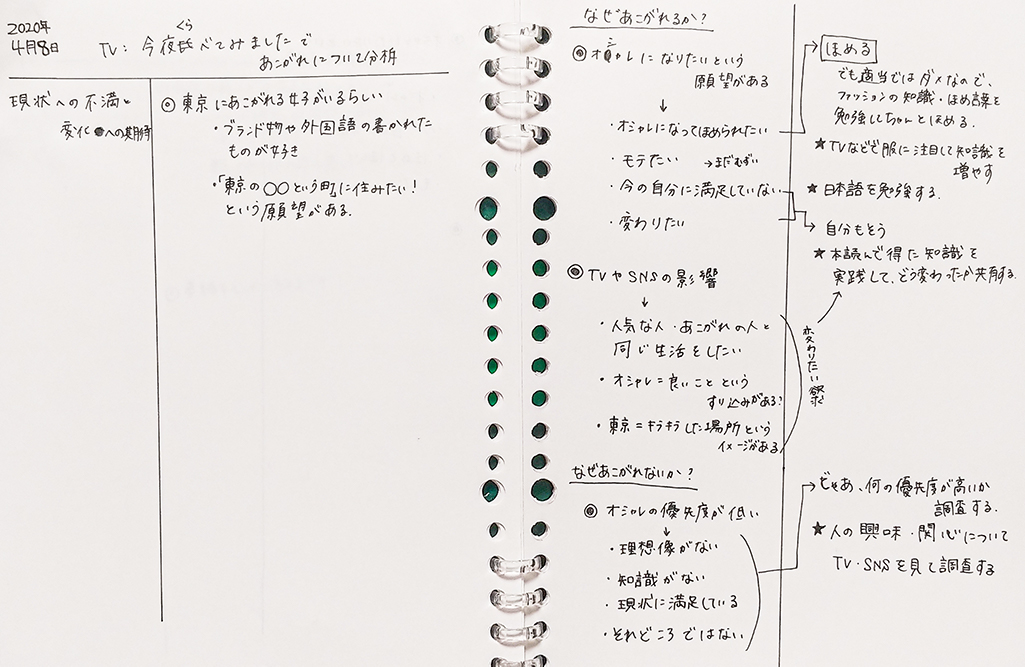 2020年
4月8日
くら
TV: 今夜比べてみましたで
あこがれについて分析
現状への不満と
変化への期待
◎東京にあこがれる女子がいるらしい
・ブランド物や外国語の書かれた
ものが好き
・「東京の〇〇という町に住みたい!
という願望がある.
なぜあこがれるか?
◎オシャレになりたいという
願望がある
↓
・オシャレになってほめられたい
・モテたい →まだむずい
・今の自分に満足していない
・変わりたい
◎TVやSNSの影響
↓
・人気な人・あこがれの人と
同じ生活をしたい
・オシャレ=良いこと という
すり込みがある?
・東京=キラキラした場所という
イメージがある
なぜあこがれないか?
◎オシャレの優先度が低い
↓
・理想像がない
・知識がない
・現状に満足している
・それどころではない
ほめる
でも適当ではダメなので、
ファッションの知識・ほめ言葉を
勉強してちゃんとほめる.
★TVなどで服に注目して知識を
増やす
★日本語を勉強する.
自分もそう
★本読んで得た知識を
実践して、どう変わったか共有する.
変わりたい欲求
じゃあ、何の優先度が高いか
調査する.
★人の興味・関心について
TV・SNSを見て調査する